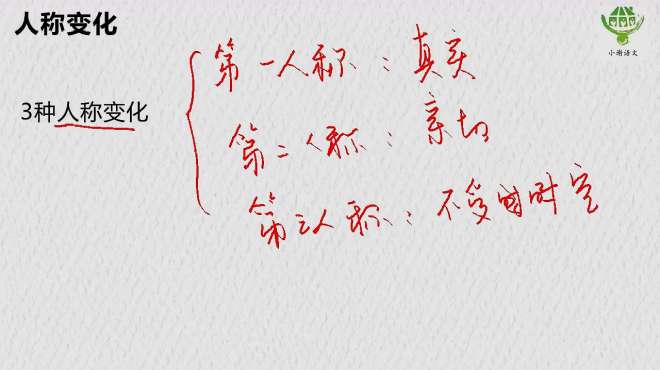 人称变化
小谢语文
第一人称：真实
3种人称变化
第二人称：亲切
第三人称：不受时空